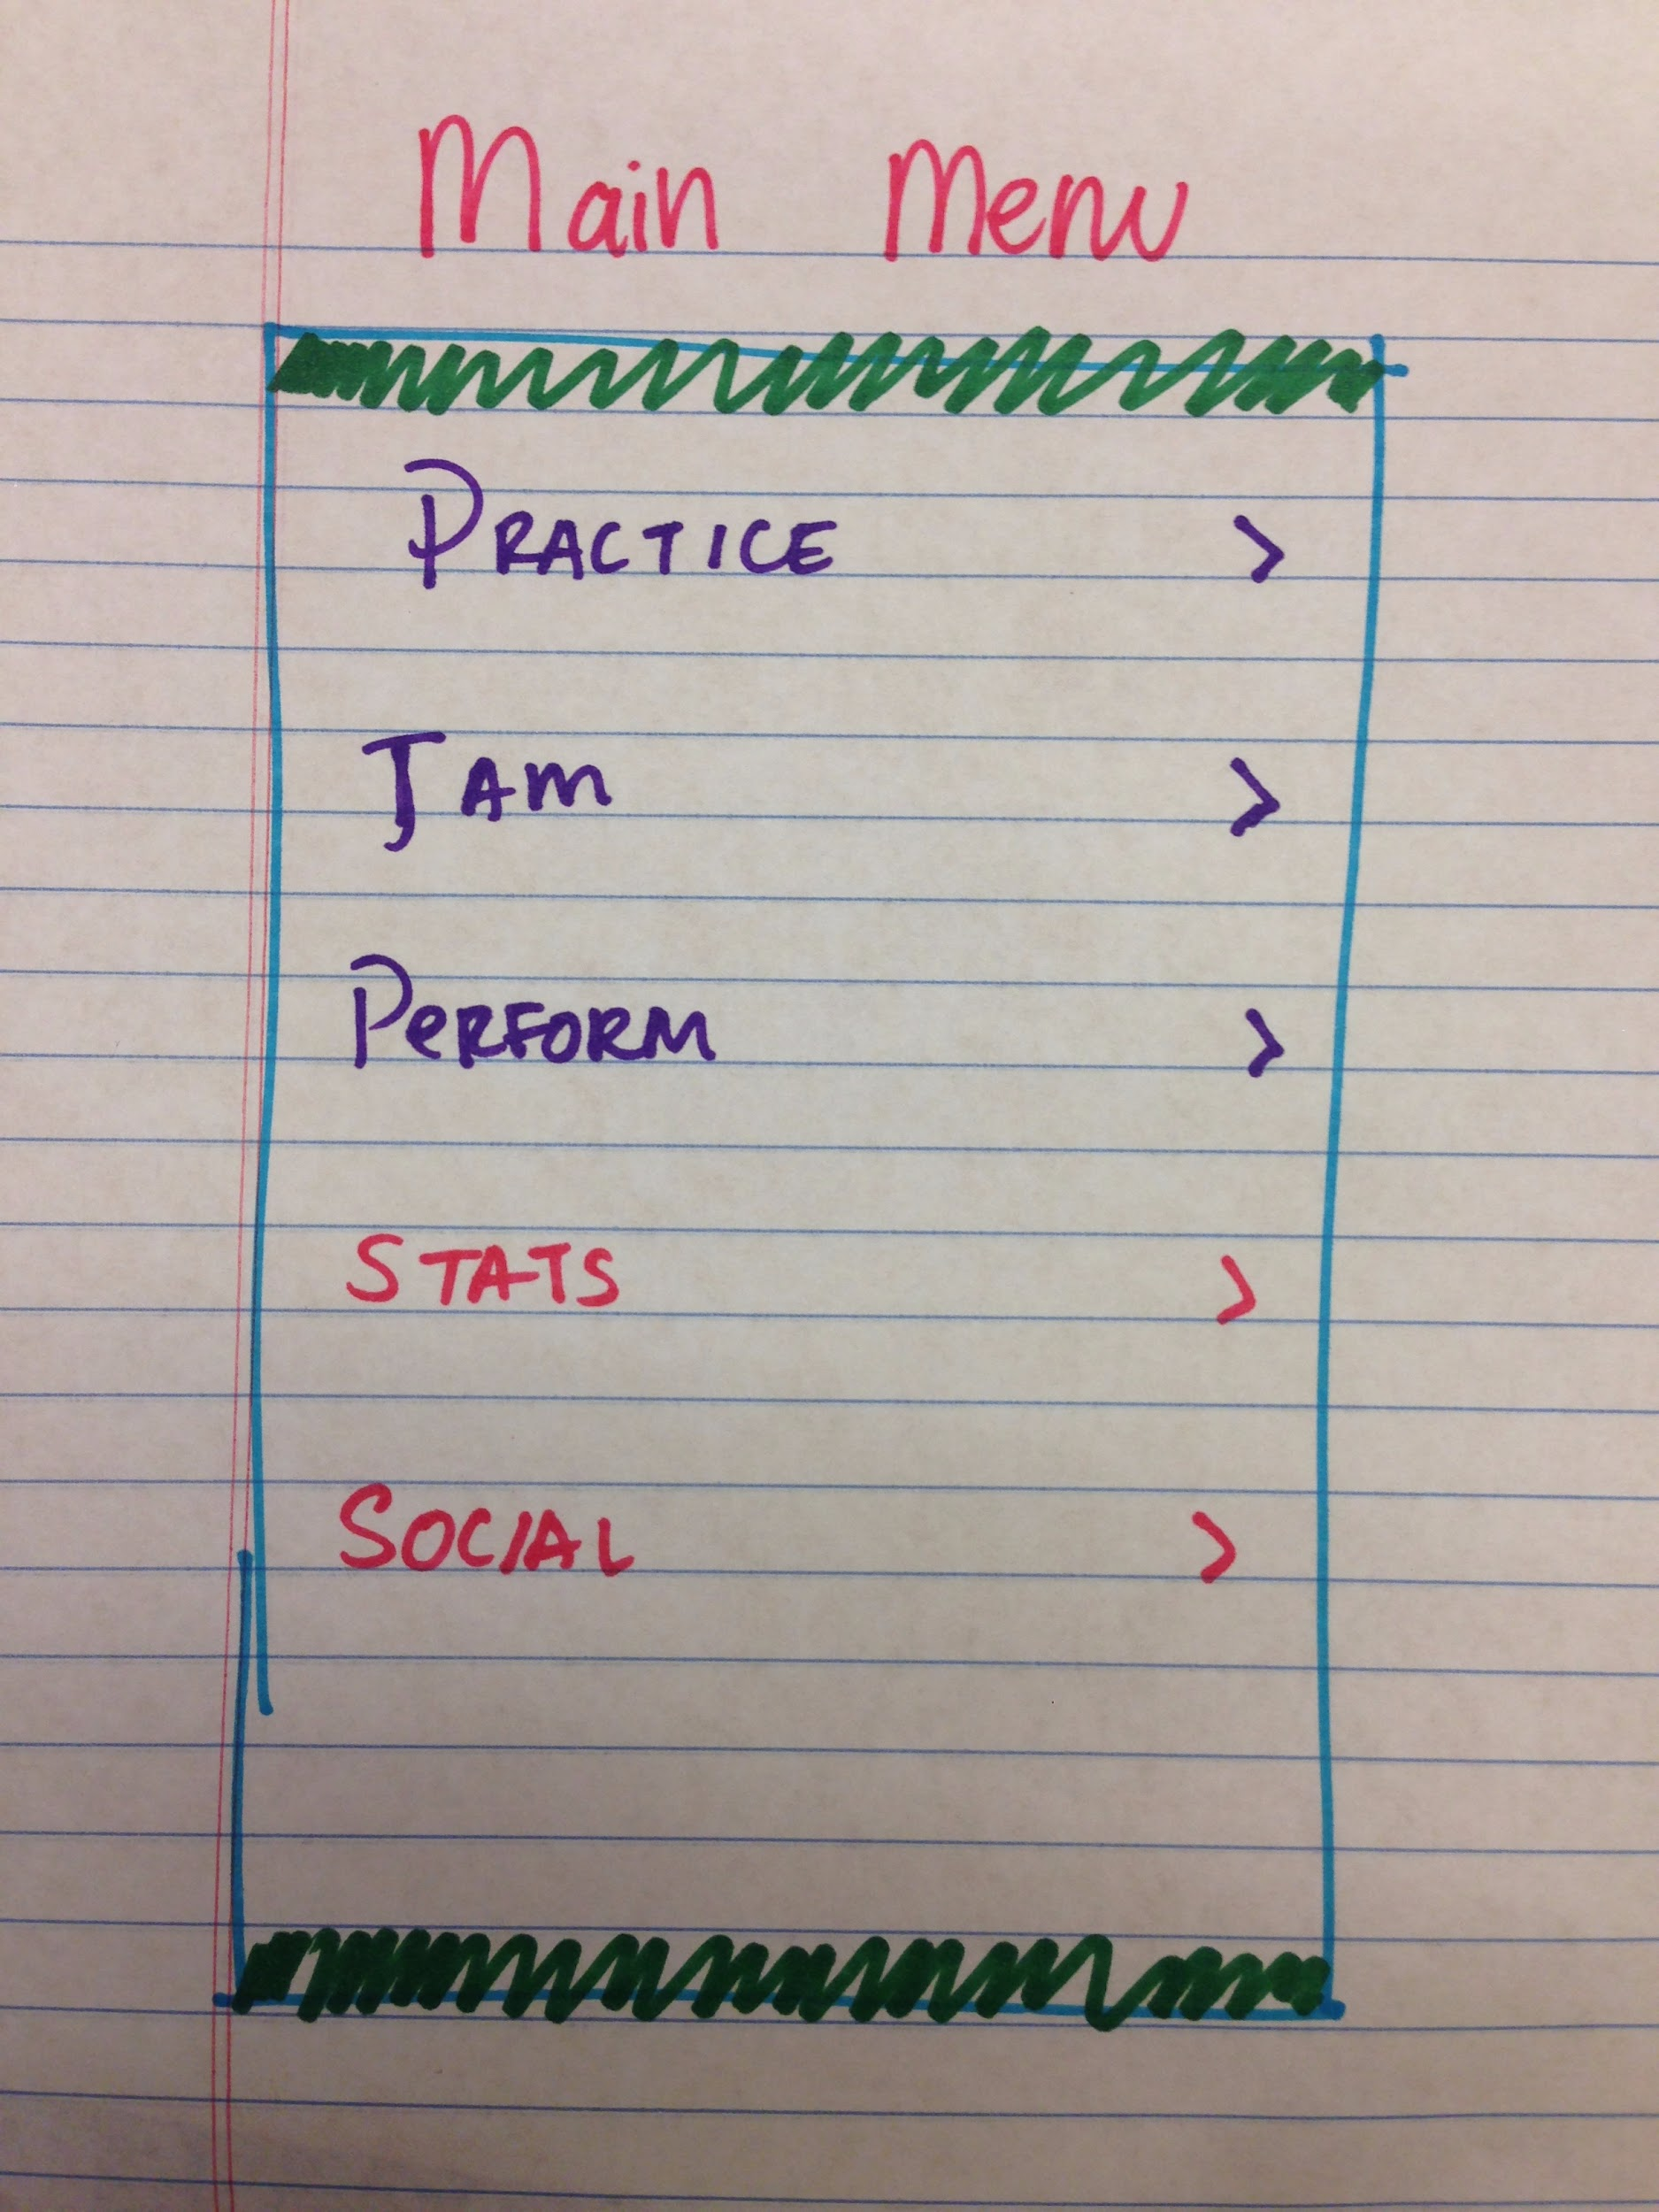 Main Menu
PRACTICE >
JAM >
PERFORM >
STATS >
SOCIAL >